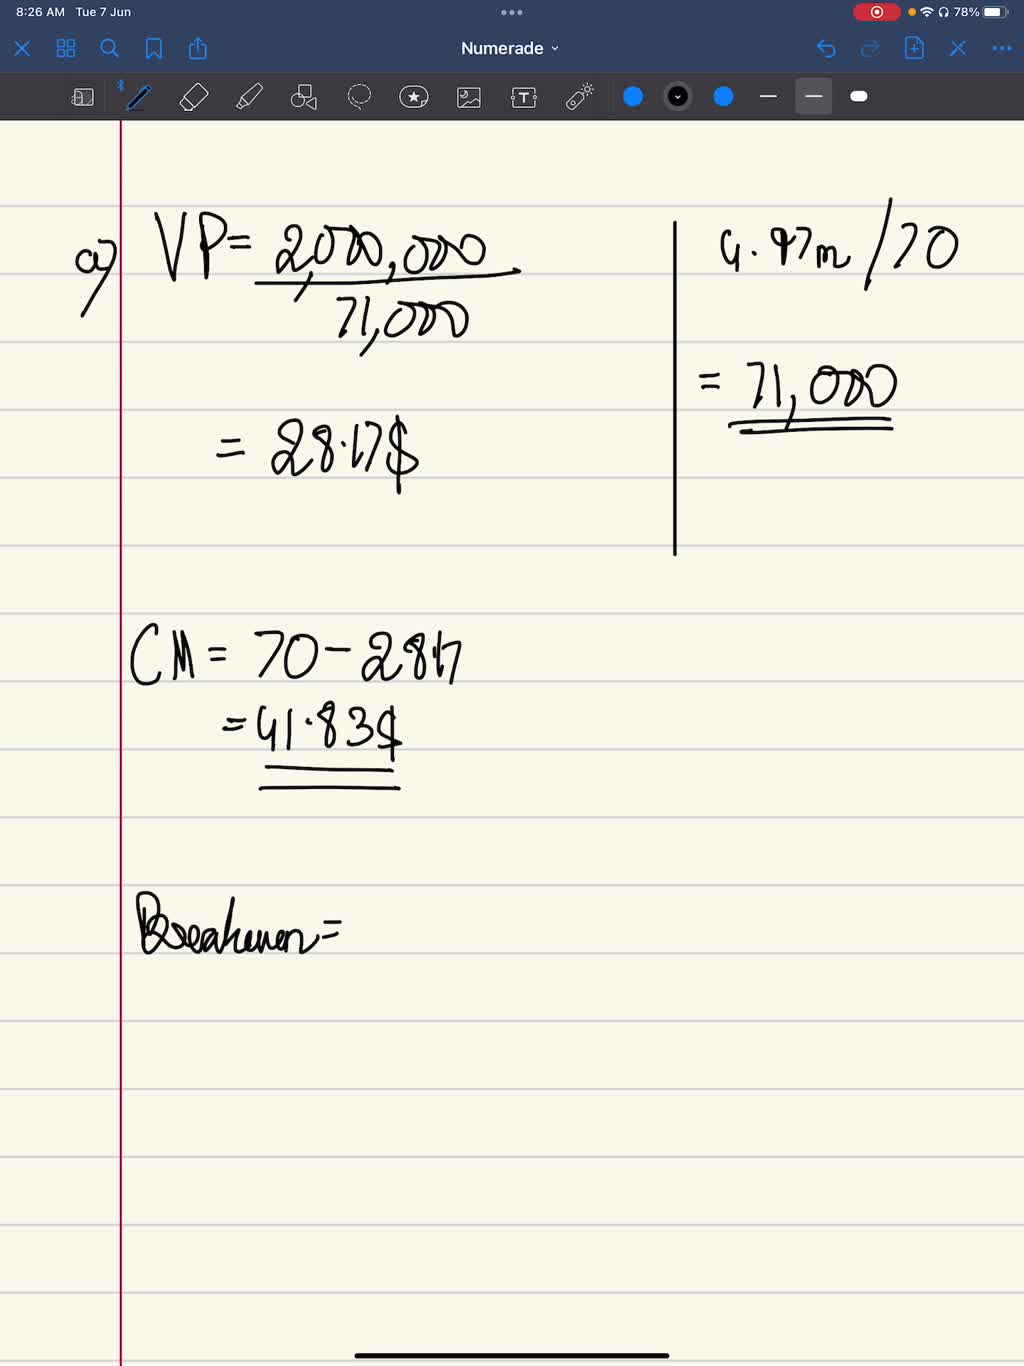 8:26 AM Tue 7 Jun
78%
Numerade
a) VP = 2,000,000
71,000
= 28.17$
4.97m/70
= 71,000
CM = 70 - 28.17
= 41.83$
Breakeven =